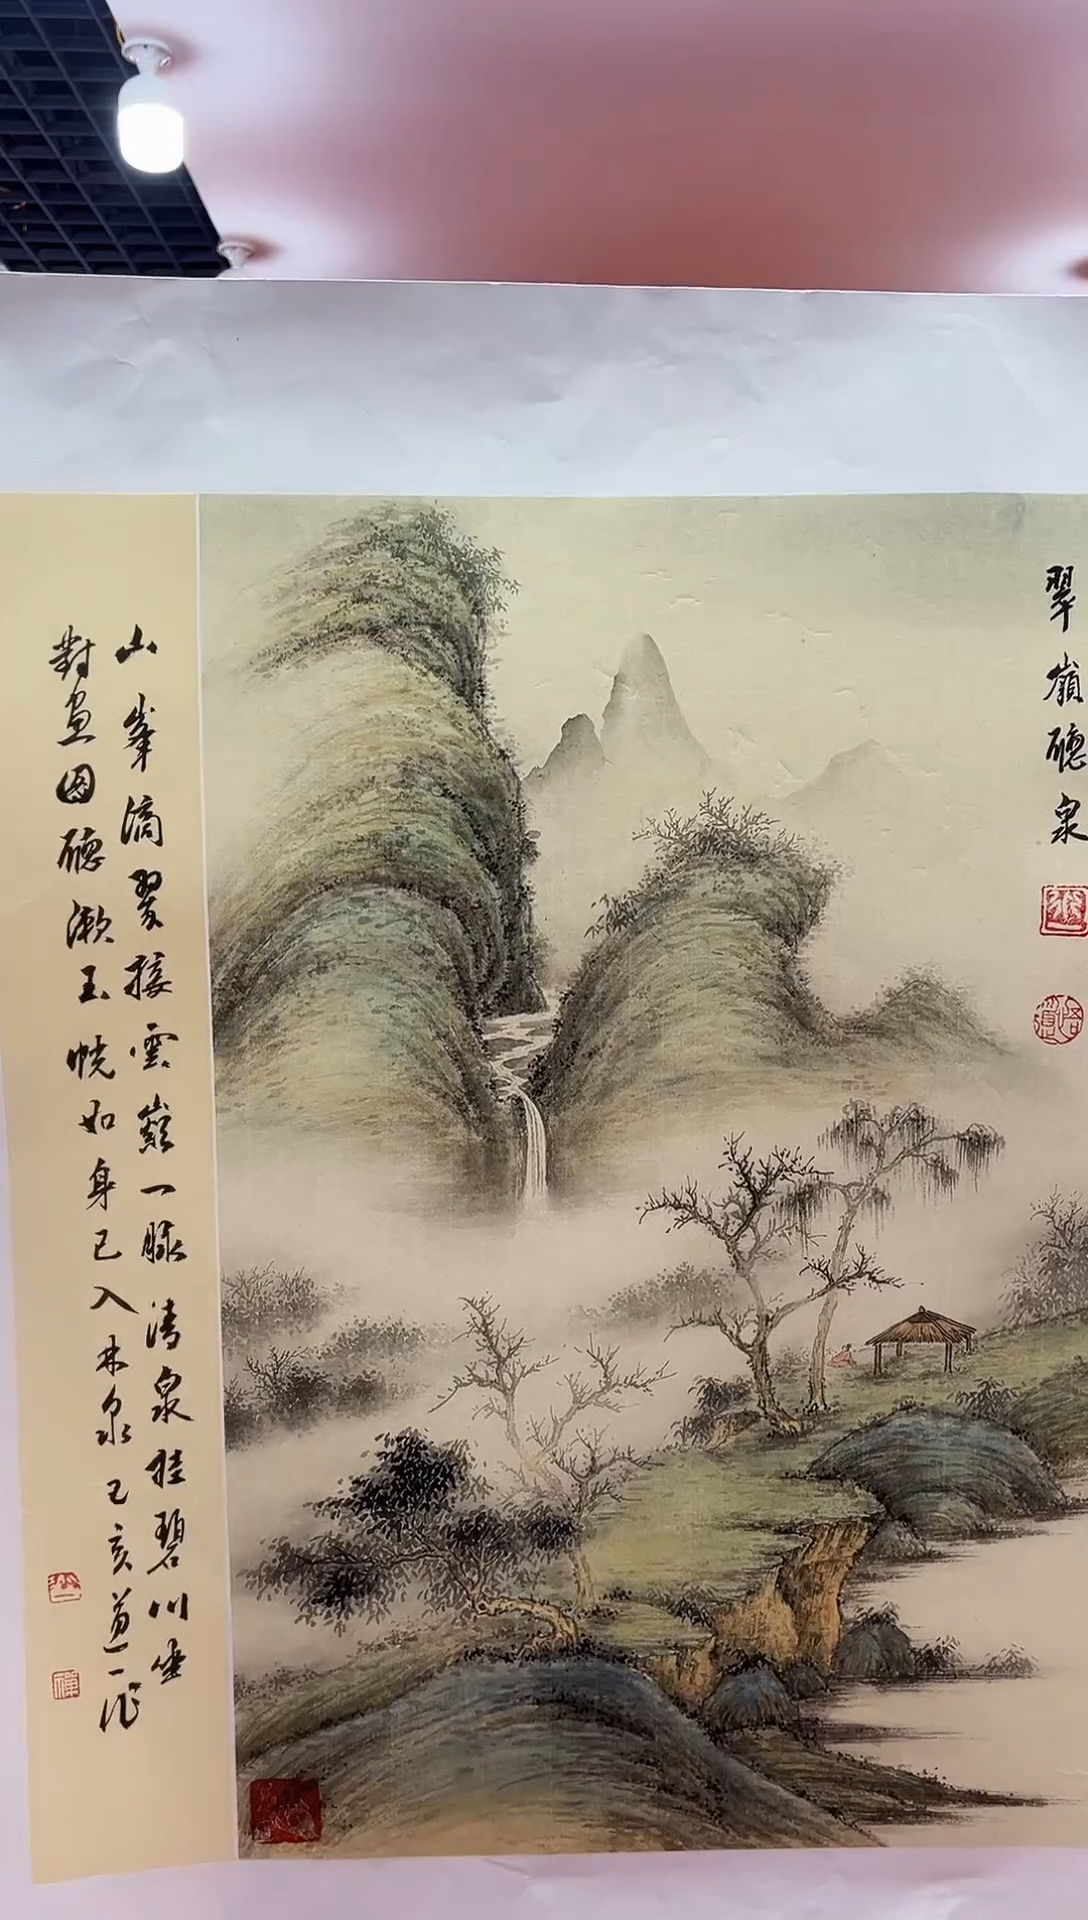 翠嶺聽泉
山峯滴翠接雲巔一脉清泉挂碧川坐
對畫圖聽漱玉恍如身已入林泉己亥道一作